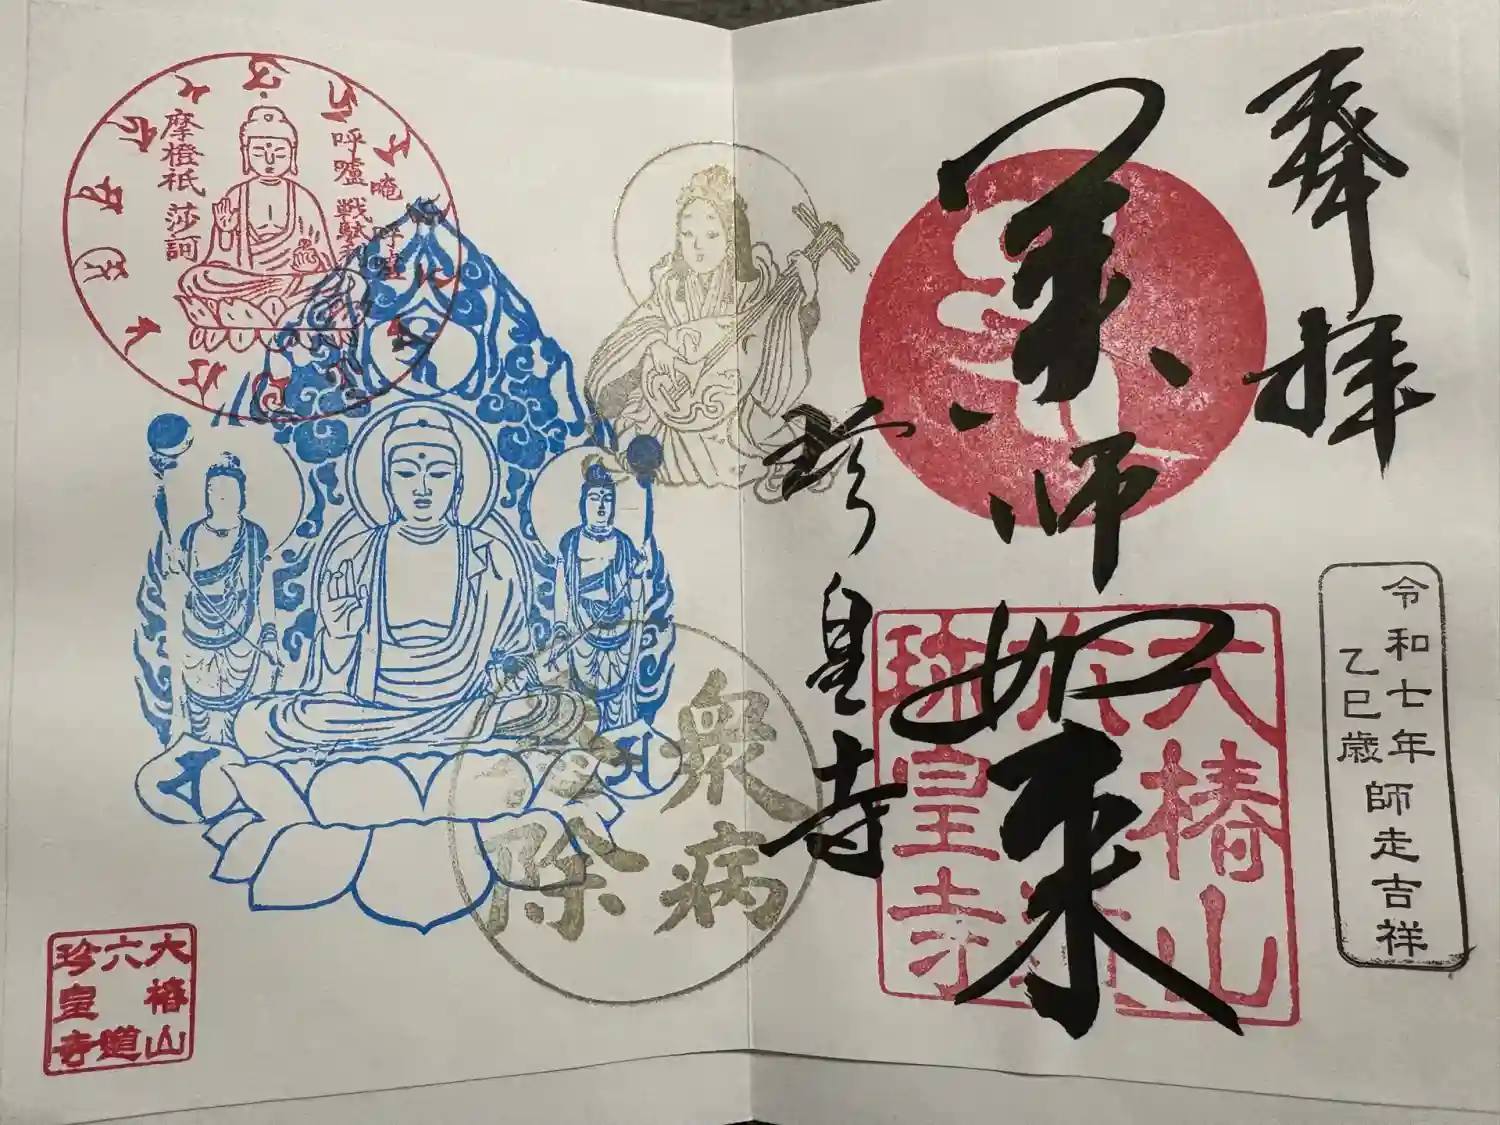 奉拝
薬師如来
珍皇寺
令和七年
乙巳歳
師走吉祥
大椿山
六道
珍皇寺
衆病
悉除
唵 呼嚧
呼嚧 戦駄利
摩橙祇 莎訶
大椿山
六道
珍皇寺